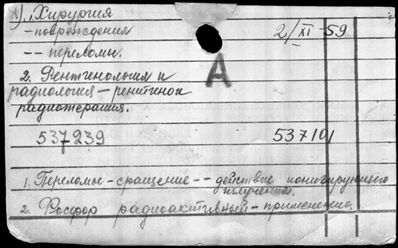 А), Хирургия
- повреждения 2/XI - 59
-- переломы.
А
2. Рентгенология и
радиология - рентгено и
радиотерапия.
537239 537101
1. Переломы - сращение -- действие ионизирующего
излучения.
2. Фосфор радиоактивный - применение.